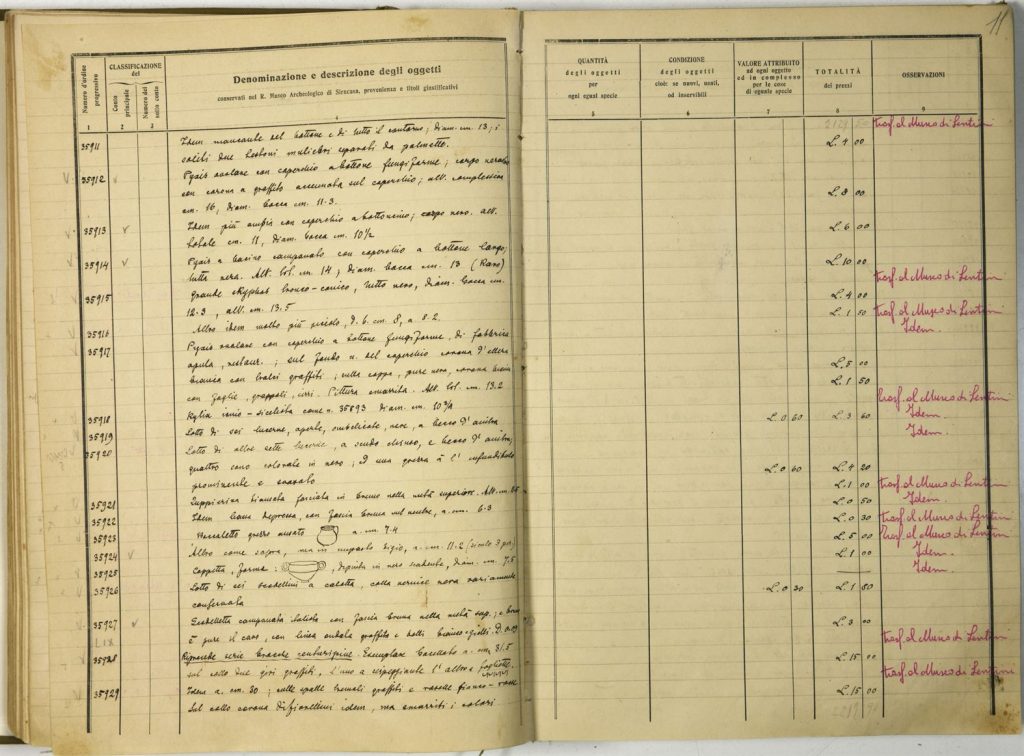 Numero d'ordine progressivo
CLASSIFICAZIONE del
Conto principale
Numero del sotto conto
Denominazione e descrizione degli oggetti
conservati nel R. Museo Archeologico di Siracusa, provenienza e titoli giustificativi
1 2 3 4
35911 Idem mancante del bottone e di tutto il contorno; diam. cm. 13; i
soliti due bustoni muliebri separati da palmetta.
35912 Pyxis ovolare con coperchio a bottone fungiforme; corpo nerastro
con corona a graffito accennata sul coperchio; alt. complessiva
cm. 16, diam. bocca cm. 11.3.
35913 Idem più ampia con coperchio a bottoncino; corpo nero. alt.
totale cm. 11, diam. bocca cm. 10 1/2
35914 Pyxis a bacino campanato con coperchio a bottone largo;
tutta nera. Alt. tot. cm. 14; diam. bocca cm. 13 (Raro)
35915 Grande skyphos tronco-conico, tutto nero, diam. bocca cm.
12.3, alt. cm. 13.5
35916 Altro idem molto più piccolo, d. b. cm. 8, a. 8.2.
35917 Pyxis ovolare con coperchio a bottone fungiforme, di fabbrica
apula, restaur.; sul fondo n. del coperchio corona d'ellera
bianca con tralci graffiti; sulla coppa, pure nera, corona bianca
con foglie, grappoli, Pittura smarrita. Alt. tot. cm. 13.2
35918 Kylix ionio-siceliota come n. 35893 diam. cm. 10 3/4
35919 Lotto di sei lucerne, aperte, ombelicate, nere, a becco d'anitra
35920 Lotto di altre sette lucerne, a scudo chiuso, e becco d'anitra;
quattro sono colorate in nero; d'una grezza è l'infundibolo
prominente e svasato
35921 Zuppierina biansata fasciata in bruno nella metà superiore. Alt. cm.
35922 Idem bassa depressa, con fascia bruna sul ventre, a. cm. 6.3
35923 Boccaletto grezzo ansato a. cm. 7.4
35924 Altro come sopra, ma in impasto bigio, a. cm. 11.2
35925 Coppetta, forma: , dipinta in nero scadente, diam. cm. 7.5
35926 Lotto di sei scodellini a calotta, colla vernice nera variamente
conservata
35927 Scodelletta campanata listata con fascia bruna nella metà sup.; e bruno
è pure il cavo, con linea ondata graffita e bolli bianco-gialli. D. 0.09
LIX
35928 Riprende serie bracere centuripine. Esemplare baccellato a. cm. 31.5
sul collo due giri graffiti, l'uno a serpeggiante l'altro a fogliette.
35929 Idem a. cm. 30; sulle spalle tremoli graffiti e rosette bianco-rosse
Sul collo corona idem, ma smarriti i colori
11
QUANTITÀ degli oggetti per ogni egual specie
CONDIZIONE degli oggetti cioè: se nuovi, usati, od inservibili
VALORE ATTRIBUITO ad ogni oggetto od in complesso per le cose di eguale specie
TOTALITÀ dei prezzi
OSSERVAZIONI
5 6 7 8 9
trasf. al Museo di Lentini
L. 4 00
L. 8 00
L. 6 00
L. 10 00
trasf. al Museo di Lentini
L. 4 00
L. 1 50 trasf. al Museo di Lentini
Idem.
L. 5 00
L. 1 50
trasf. al Museo di Lentini
L. 0 60 L. 3 60 Idem.
Idem.
L. 0 60 L. 4 20
L. 1 00 trasf. al Museo di Lentini
L. 0 50 Idem.
L. 0 30 trasf. al Museo di Lentini
L. 5 00 trasf. al Museo di Lentini
L. 1 00 Idem.
Idem.
L. 0 30 L. 1 80
L. 3 00
trasf. al Museo di Lentini
L. 15 00
trasf. al Museo di Lentini
L. 15 00